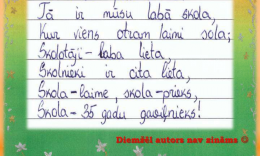 Tā ir mūsu labā skola,
Kur viens otram laimi sola;
Skolotāji - laba lieta
Skolnieki ir cita lieta,
Skola - laime, skola - prieks,
Skola - 35 gadu gaviļnieks!
Diemžēl autors nav zināms ☹